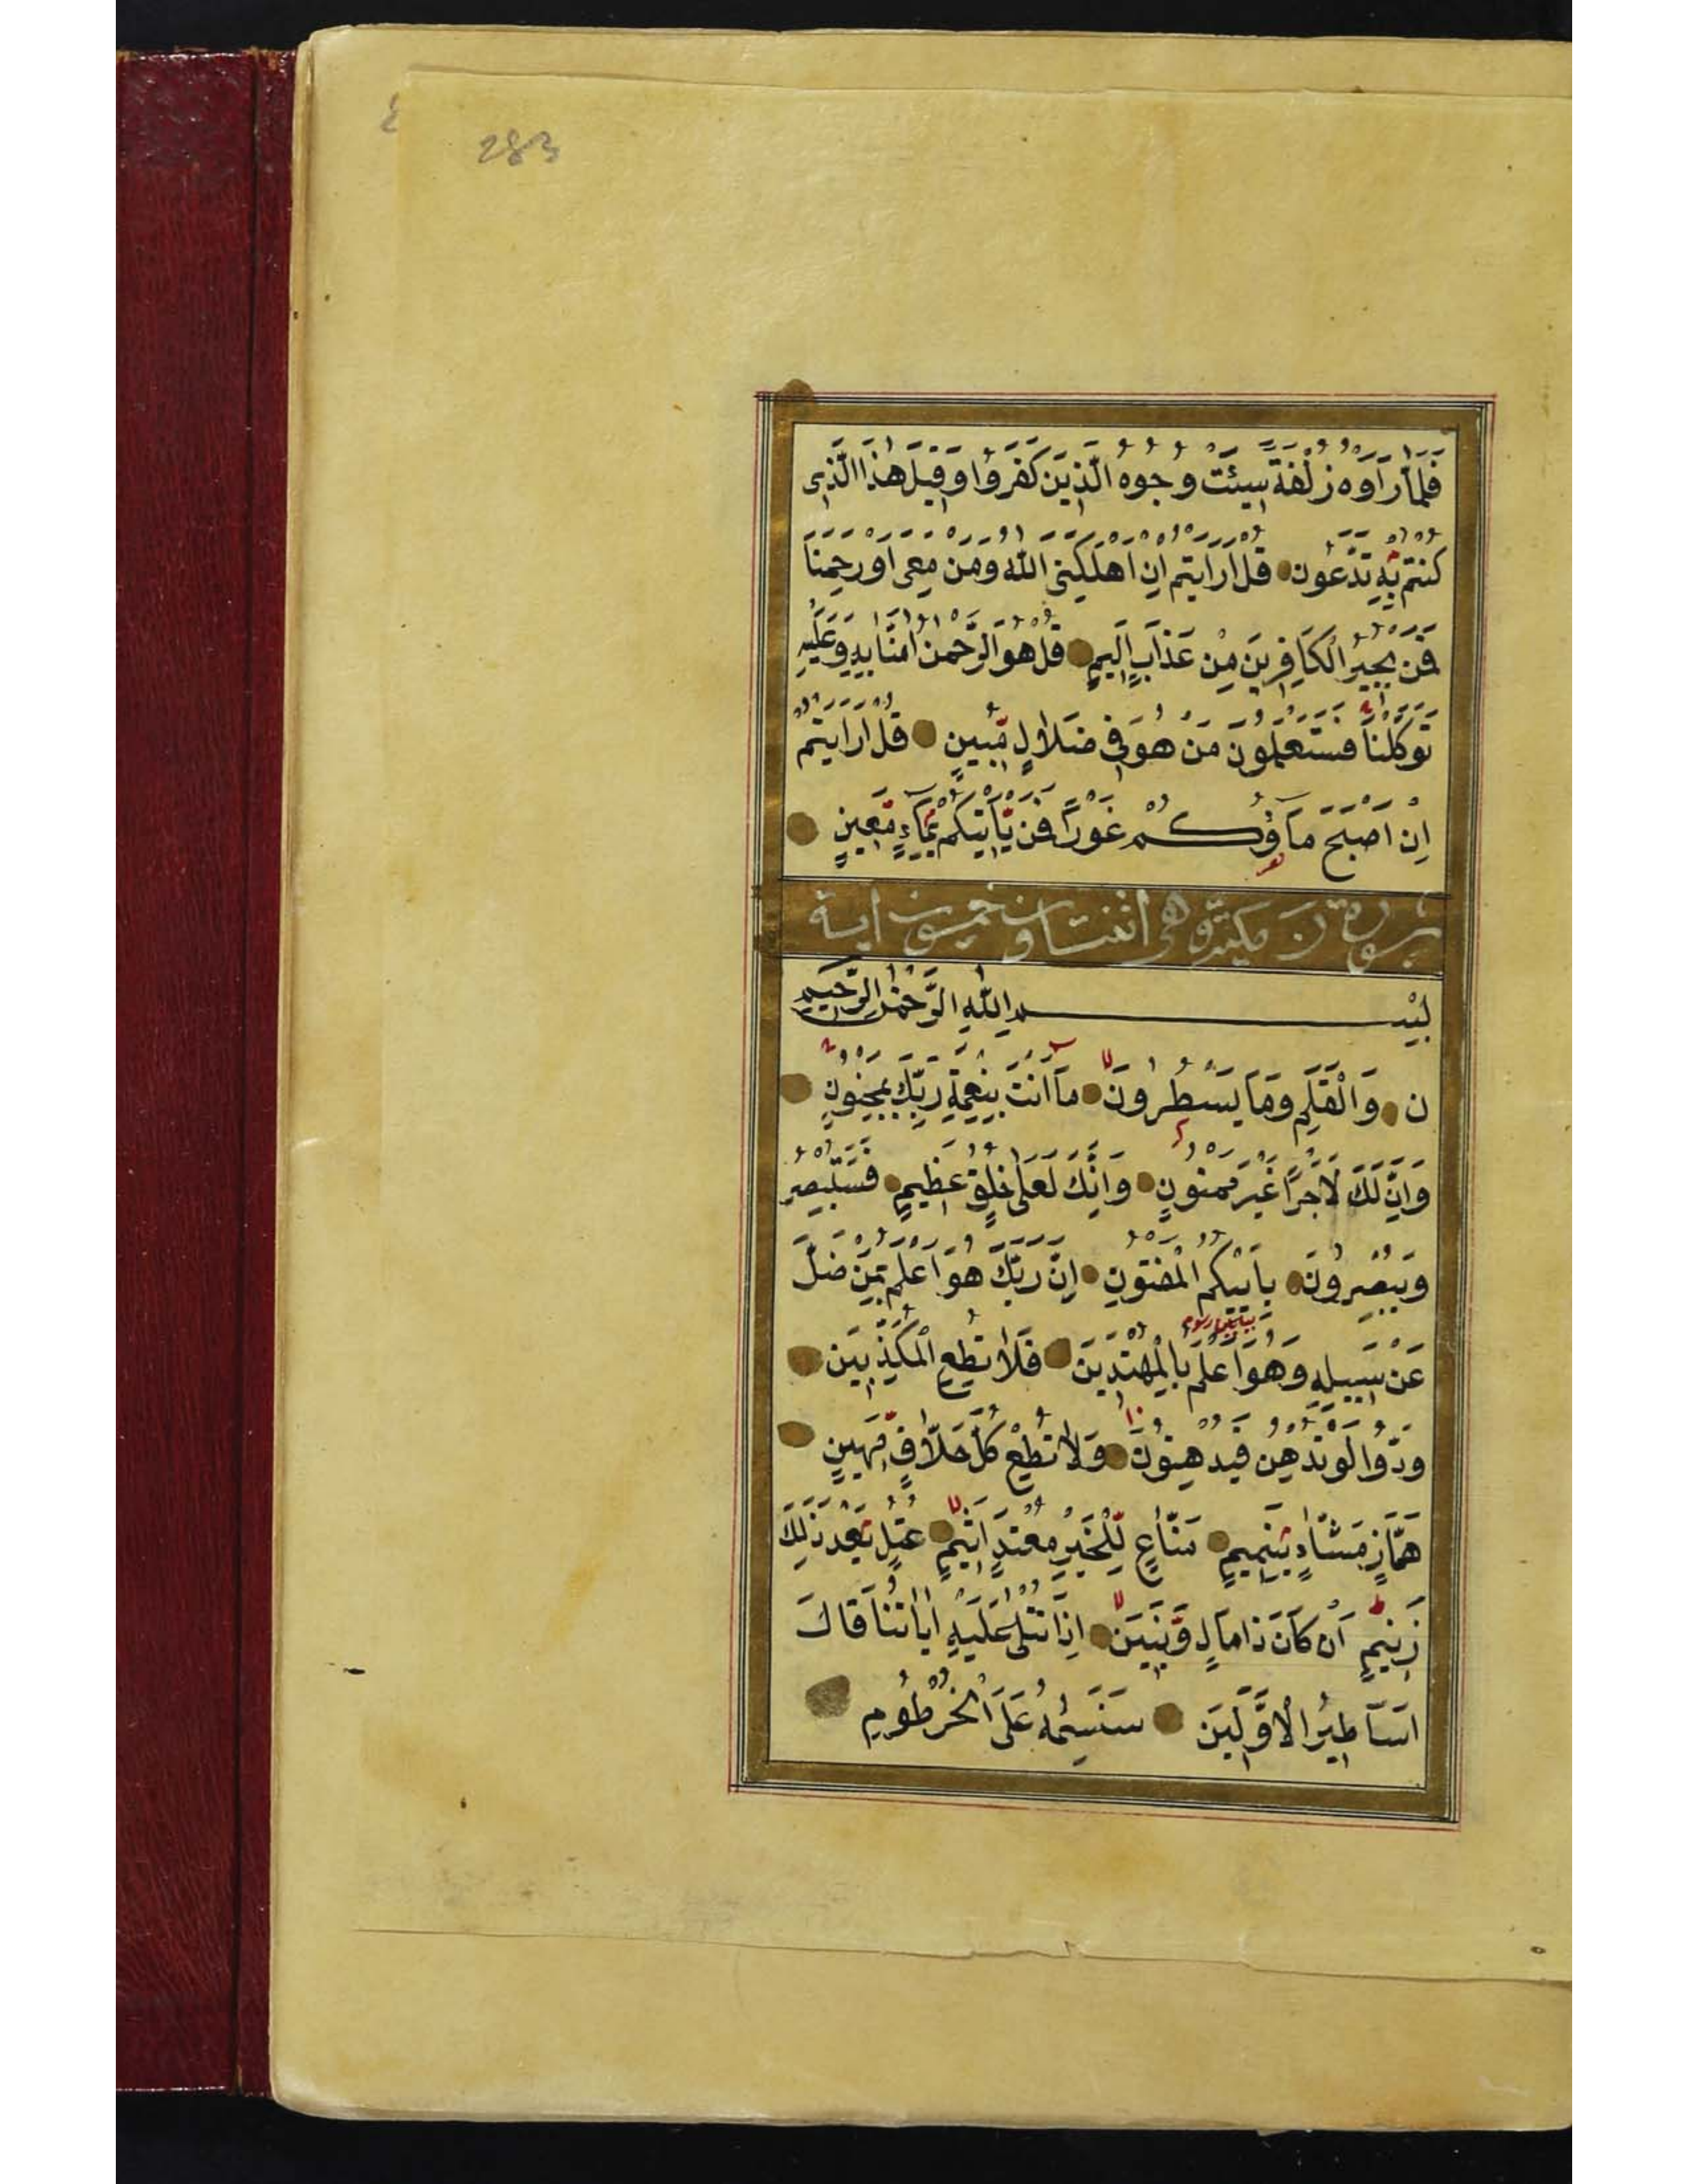 283
فَلَمَّا رَاَوْهُ زُلْفَةً سِيْئَتْ وُجُوهُ الَّذِيْنَ كَفَرُوْا وَقِيْلَ هٰذَا الَّذِى
كُنْتُمْ بِهٖ تَدَّعُوْنَ قُلْ اَرَاَيْتُمْ اِنْ اَهْلَكَنِىَ اللّٰهُ وَمَنْ مَعِىَ اَوْ رَحِمَنَا
فَمَنْ يُجِيْرُ الْكَافِرِيْنَ مِنْ عَذَابٍ اَلِيْمٍ قُلْ هُوَ الرَّحْمٰنُ اٰمَنَّا بِهٖ وَعَلَيْهِ
تَوَكَّلْنَا فَسَتَعْلَمُوْنَ مَنْ هُوَ فِى ضَلَالٍ مُّبِيْنٍ قُلْ اَرَاَيْتُمْ
اِنْ اَصْبَحَ مَاؤُكُمْ غَوْرًا فَمَنْ يَّاْتِيْكُمْ بِمَاۤءٍ مَّعِيْنٍ
سورة ن مكية وهى اثنتان وخمسون اية
بِسْمِ اللّٰهِ الرَّحْمٰنِ الرَّحِيْمِ
ن وَالْقَلَمِ وَمَا يَسْطُرُوْنَ مَاۤ اَنْتَ بِنِعْمَةِ رَبِّكَ بِمَجْنُوْنٍ
وَاِنَّ لَكَ لَاَجْرًا غَيْرَ مَمْنُوْنٍ وَاِنَّكَ لَعَلٰى خُلُقٍ عَظِيْمٍ فَسَتُبْصِرُ
وَيُبْصِرُوْنَ بِاَيِّكُمُ الْمَفْتُوْنُ اِنَّ رَبَّكَ هُوَ اَعْلَمُ بِمَنْ ضَلَّ
عَنْ سَبِيْلِهٖ وَهُوَ اَعْلَمُ بِالْمُهْتَدِيْنَ فَلَا تُطِعِ الْمُكَذِّبِيْنَ
وَدُّوْا لَوْ تُدْهِنُ فَيُدْهِنُوْنَ وَلَا تُطِعْ كُلَّ حَلَّافٍ مَّهِيْنٍ
هَمَّازٍ مَشَّاۤءٍ بِنَمِيْمٍ مَنَّاعٍ لِّلْخَيْرِ مُعْتَدٍ اَثِيْمٍ عُتُلٍّ بَعْدَ ذٰلِكَ
زَنِيْمٍ اَنْ كَانَ ذَا مَالٍ وَّبَنِيْنَ اِذَا تُتْلٰى عَلَيْهِ اٰيَاتُنَا قَالَ
اَسَاطِيْرُ الْاَوَّلِيْنَ سَنَسِمُهُ عَلَى الْخُرْطُوْمِ